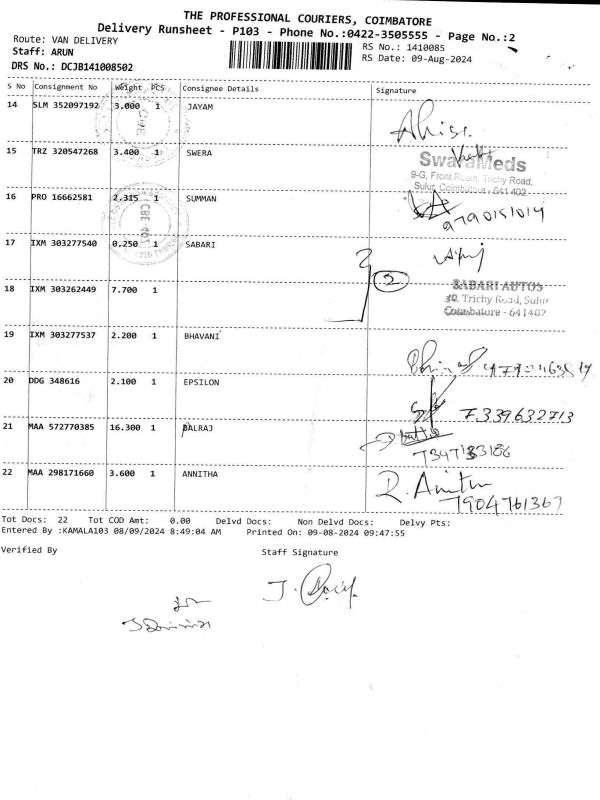 THE PROFESSIONAL COURIERS, COIMBATORE
Delivery Runsheet - P103 - Phone No.:0422-3505555 - Page No.:2
Route: VAN DELIVERY RS No.: 1410085
Staff: ARUN RS Date: 09-Aug-2024
DRS No.: DCJB141008502
S No Consignment No Weight PCS Consignee Details Signature
14 SLM 352097192 3.000 1 JAYAM
15 TRZ 320547268 3.400 1 SWERA
SwaraMeds
9-G, Front Room, Trichy Road,
Sulur, Coimbatore - 641 402
16 PRO 16662581 2.315 1 SUMMAN
9790151014
17 IXM 303277540 0.250 1 SABARI
2
18 IXM 303262449 7.700 1
SABARI AUTOS
30, Trichy Road, Sulur
Coimbatore - 641402
19 IXM 303277537 2.200 1 BHAVANI
20 DDG 348616 2.100 1 EPSILON
7339632713
21 MAA 572770385 16.300 1 BALRAJ
7347133186
22 MAA 298171660 3.600 1 ANNITHA
R. Anitha
7904761367
Tot Docs: 22 Tot COD Amt: 0.00 Delvd Docs: Non Delvd Docs: Delvy Pts:
Entered By :KAMALA103 08/09/2024 8:49:04 AM Printed On: 09-08-2024 09:47:55
Verified By Staff Signature